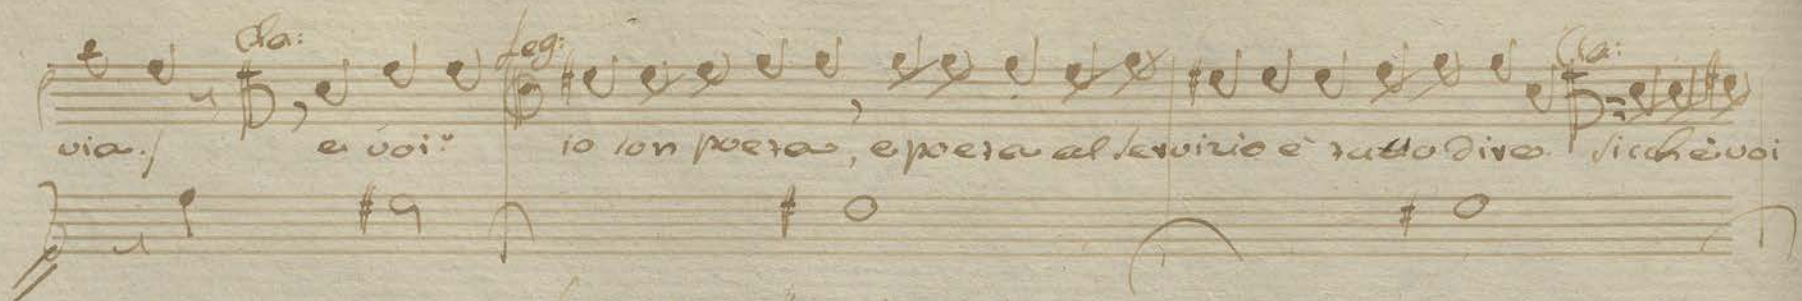 Cla: Seg: Cla:
via./ e voi? io son poeta, e poeta al servizio è tutto dire. sicchè voi